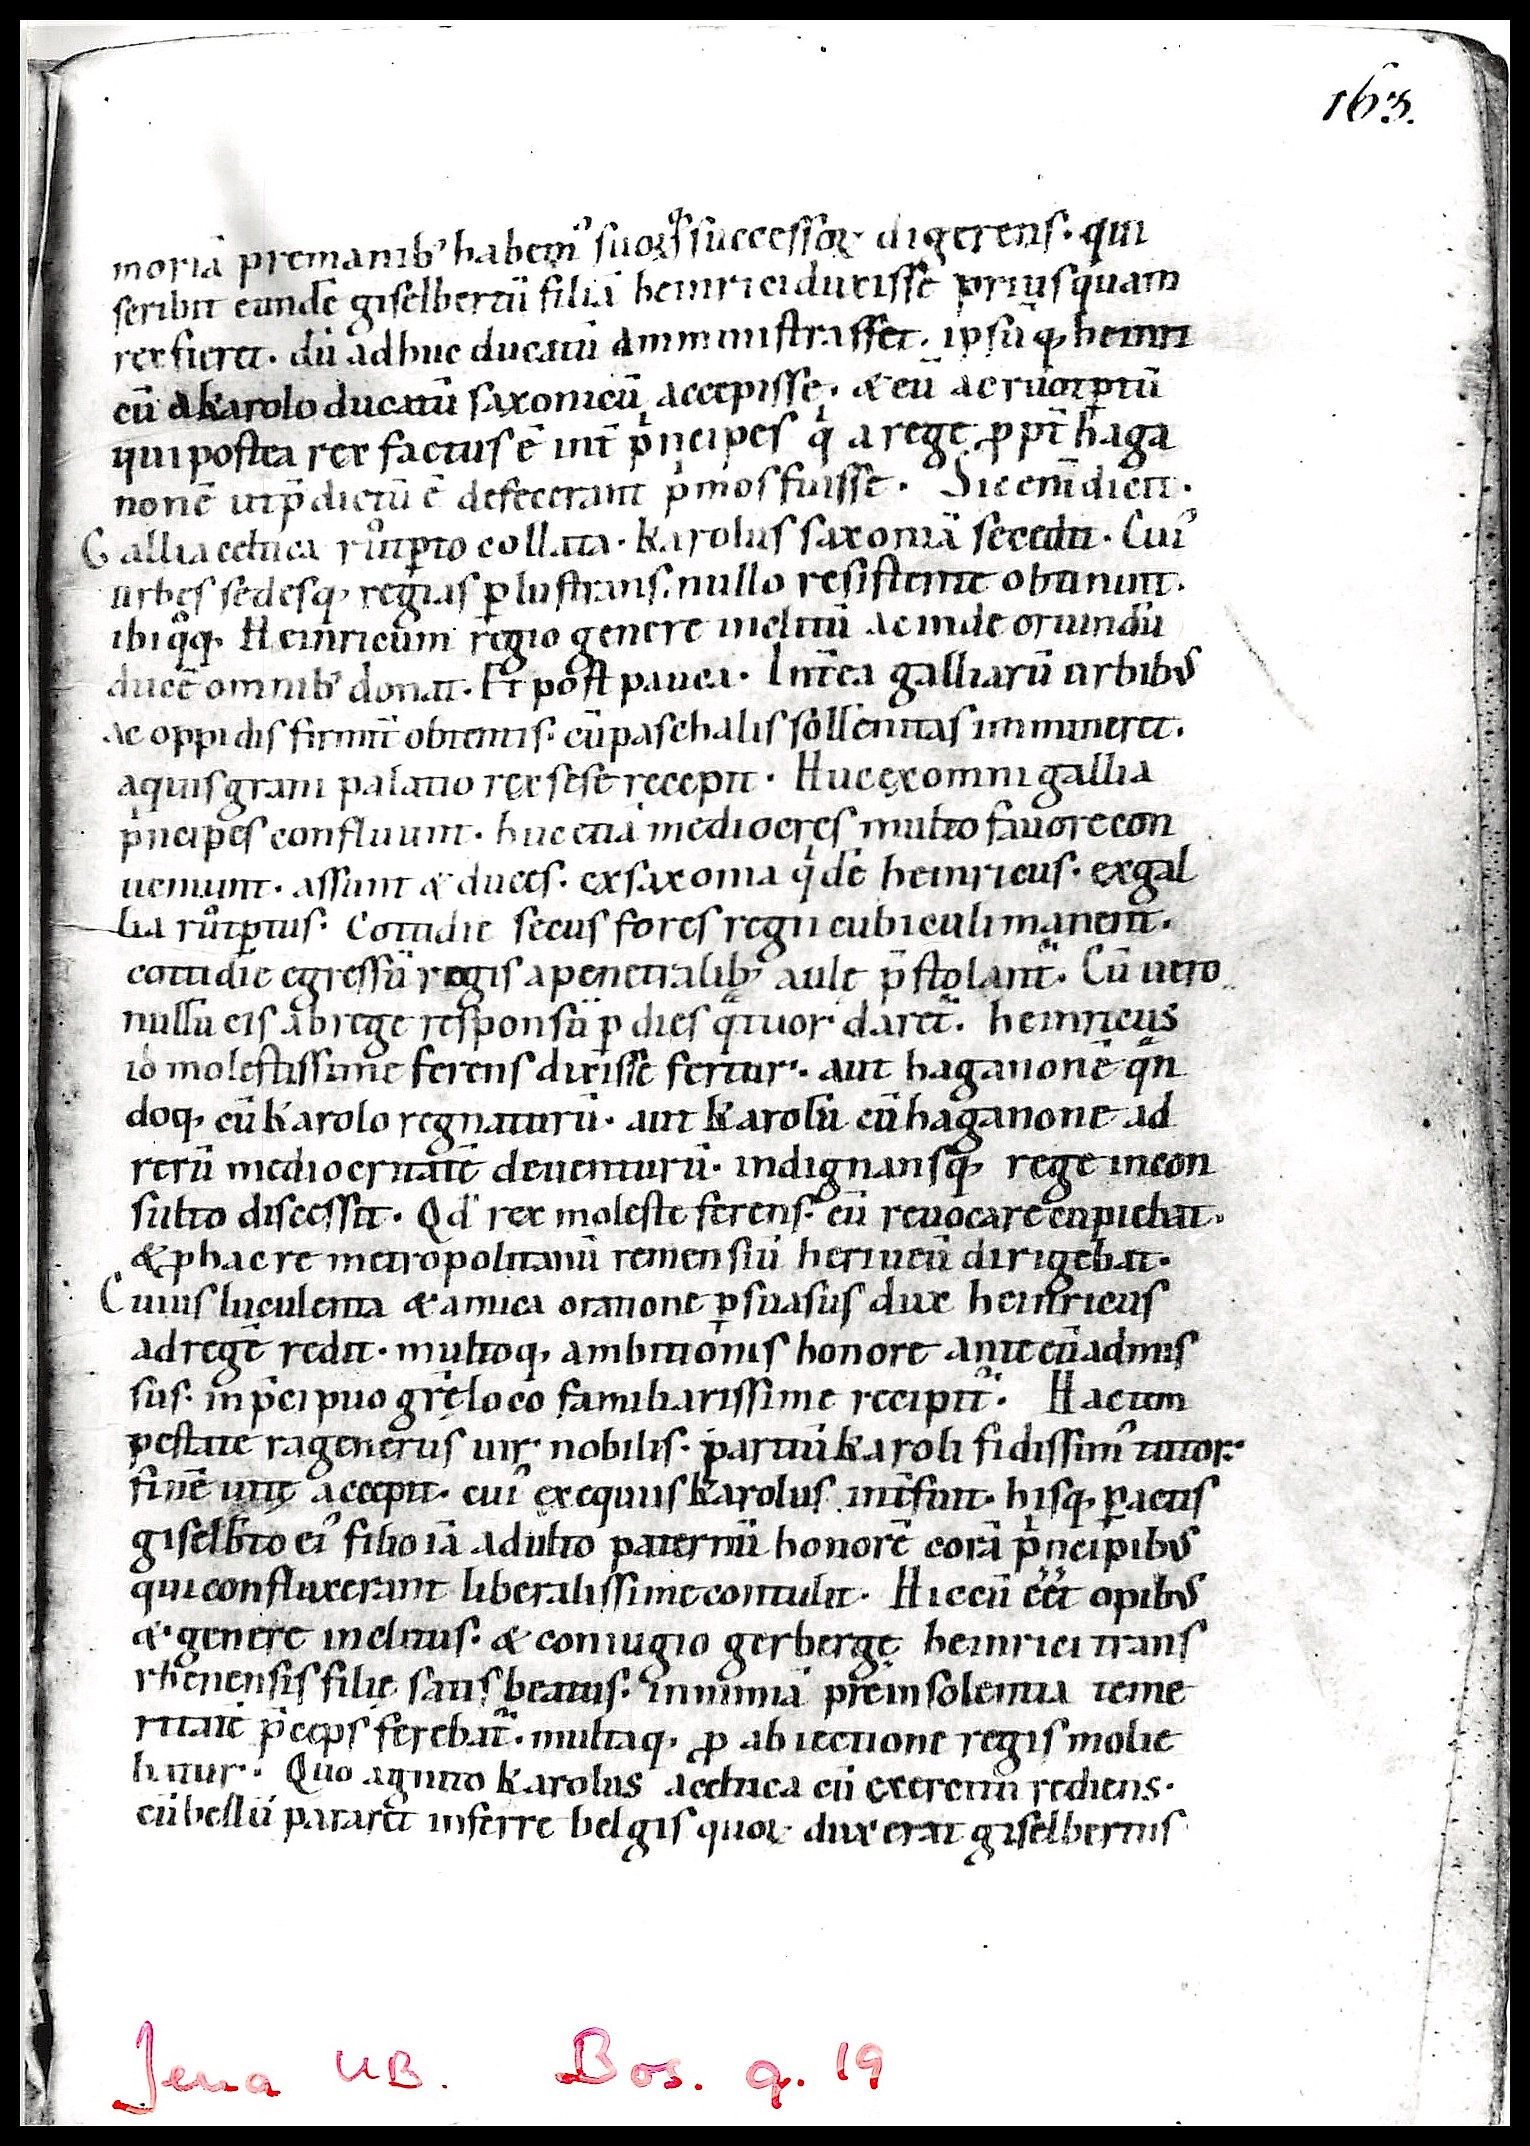 163.
moriā premanib' habem' suoꝝq; successoꝝ digerens. qui
scribit eundē giselbertū filiā heinrici duxisse priusquam
rex fieret. dū adhuc ducatū amministrasset. ipsūq; heinri
cū a karolo ducatū saxonicū accepisse. & eū ac ruotꝑtū
qui postea rex factus ē int̄ pͥncipes qͥ a rege ꝓpt̄ haga
nonē ut p̄dictū ē defecerant pͥmos fuisse. Sic eni̅ dicit.
Gallia celtica ruͦtꝑto collata. karolus saxoniā secedit. Cui'
urbes sedesq; regias ꝑlustrans. nullo resistente obtinuit.
ibi qͦq; Heinricum regio genere inclitū ac inde oriundū
ducē omnib' donat. Et post pauca. Int̄ea galliarū urbibus
ac oppidis firmit̄ obtentis. cū paschalis sollēnitas immineret.
aquisgrani palatio rex sese recepit. Huc ex omni gallia
pͥncipes confluunt. huc etiā mediocres multo fauore con
ueniunt. assunt & duces. ex saxonia qͥdē heinricus. ex gal
lia ruͦtꝑtus. Cottidie secus fores regii cubiculi manent.
cottidie egressū regis a penetralib; aule p̄stolant᷑. Cū uero
nullū eis ab rege responsū ꝑ dies qͣtuor daret᷑. heinricus
id molestissime ferens dixisse fertur. aut haganonē qͣn
doq; cū karolo regnaturū. aut karolū cū haganone ad
rerū mediocritatē deuenturū. indignansq; rege incon
sulto discessit. Qd̄ rex moleste ferens. eū reuocare cupiebat.
& ꝑ hac re metropolitanū remensiū heriueū dirigebat.
Cuius luculenta & amica oratione ꝑsuasus dux heinricus
ad regē redit. multoq; ambitionis honore ante eū admis
sus. in p̄cipuo gr̄ę loco familiarissime recipit᷑. Hac tem
pestate ragenerus uir nobilis. partiū karoli fidissim' tutor.
finē uitę accepit. cui' exequiis karolus int̄fuit. hisq; ꝑactis
giselbto ei' filio iā adulto paternū honorē corā pͥncipibus
qui confluxerant liberalissime contulit. Hic cū eēt opibus
& genere inclitus. & coniugio gerbergę heinrici trans
rhenensis filię satis beatus. in nimiā pre insolentia teme
ritatē p̄ceps ferebat᷑. multaq; ꝓ abiectione regis molie
batur. Quo agnito karolus a celtica cū exercitu rediens.
cū bellū pararet inferre belgis quoꝝ dux erat giselbertus
Jena UB. Bos. q. 19